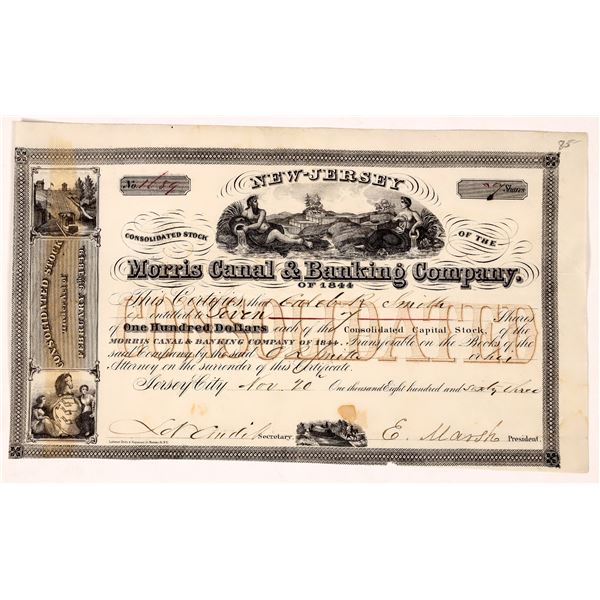 85
No. 1689
7 Shares
NEW-JERSEY
CONSOLIDATED STOCK OF THE
Morris Canal & Banking Company.
OF 1844
This Certifies that Caleb R. Smith
is entitled to Seven 7 Shares
of One Hundred Dollars each of the Consolidated Capital Stock, of the
MORRIS CANAL & BANKING COMPANY OF 1844. Transferable on the Books of the
said Company by the said C R Smith or his
Attorney on the surrender of this Certificate.
Jersey City Nov. 20 One thousand Eight hundred and sixty three
Secretary. E. Marsh President.
CONSOLIDATED
CONSOLIDATED STOCK
Under Act of
FEBRUARY